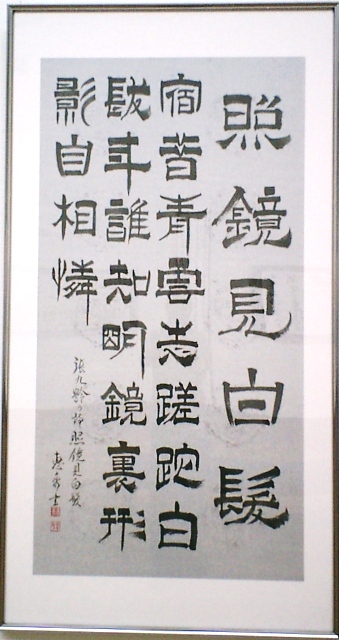 照鏡見白髪
宿昔青雲志蹉跎白
髪年誰知明鏡裏形
影自相憐
張九齢の詩照鏡見白髪